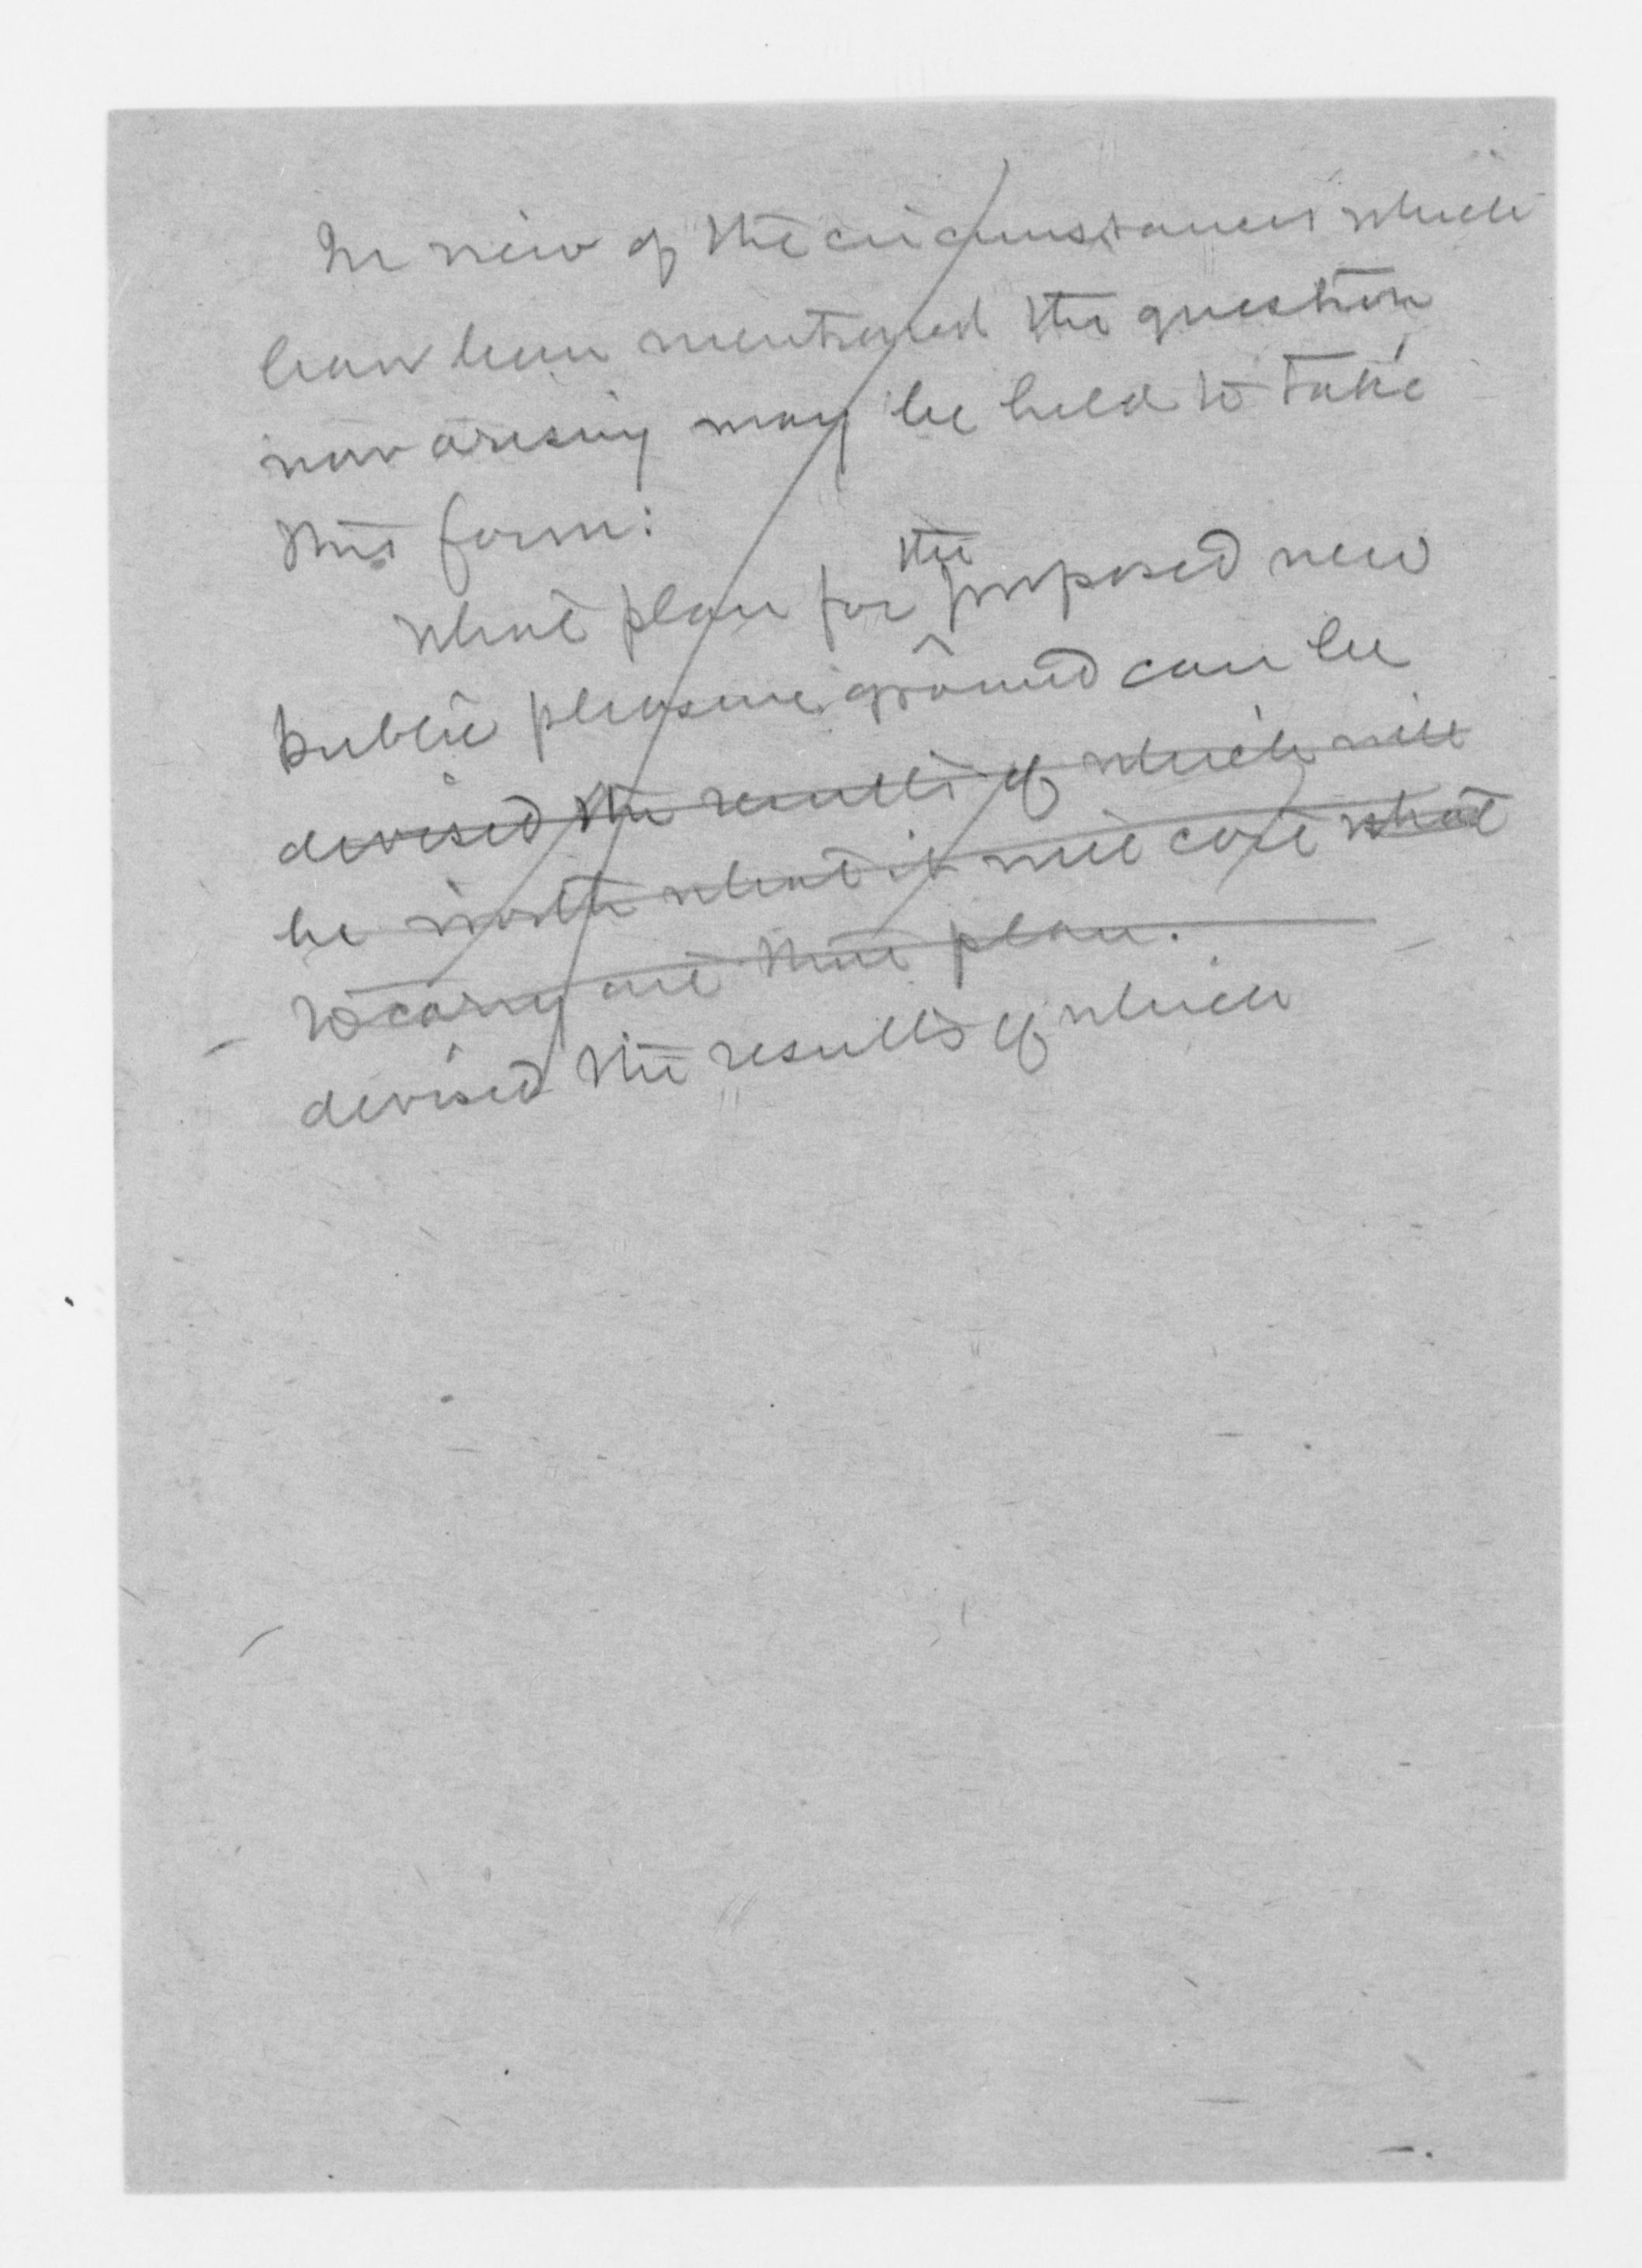 In view of the circumstances which
have been mentioned the question
now arising may be held to take
this form:
What plan for the proposed new
public pleasure ground can be
devised the results of which will
be worth what it will cost what
to carry out that plan.
devised the results of which